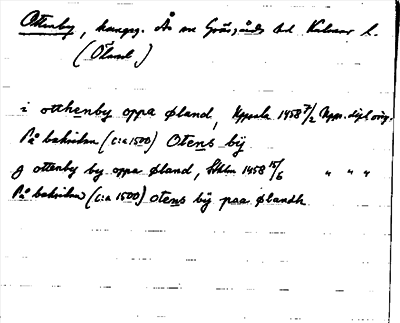 Ottenby, kungsg. Ås sn Gräsgårds hd Kalmar l.
(Öland)
i otthenby oppa øland, Uppsala 1458 7/2 Uppn. dipl orig.
På baksidan (c:a 1500) Otens bÿ
J ottenby by oppa øland, Sthlm 1458 15/6 " " "
På baksidan (c:a 1500) otens bÿ paa ølandh